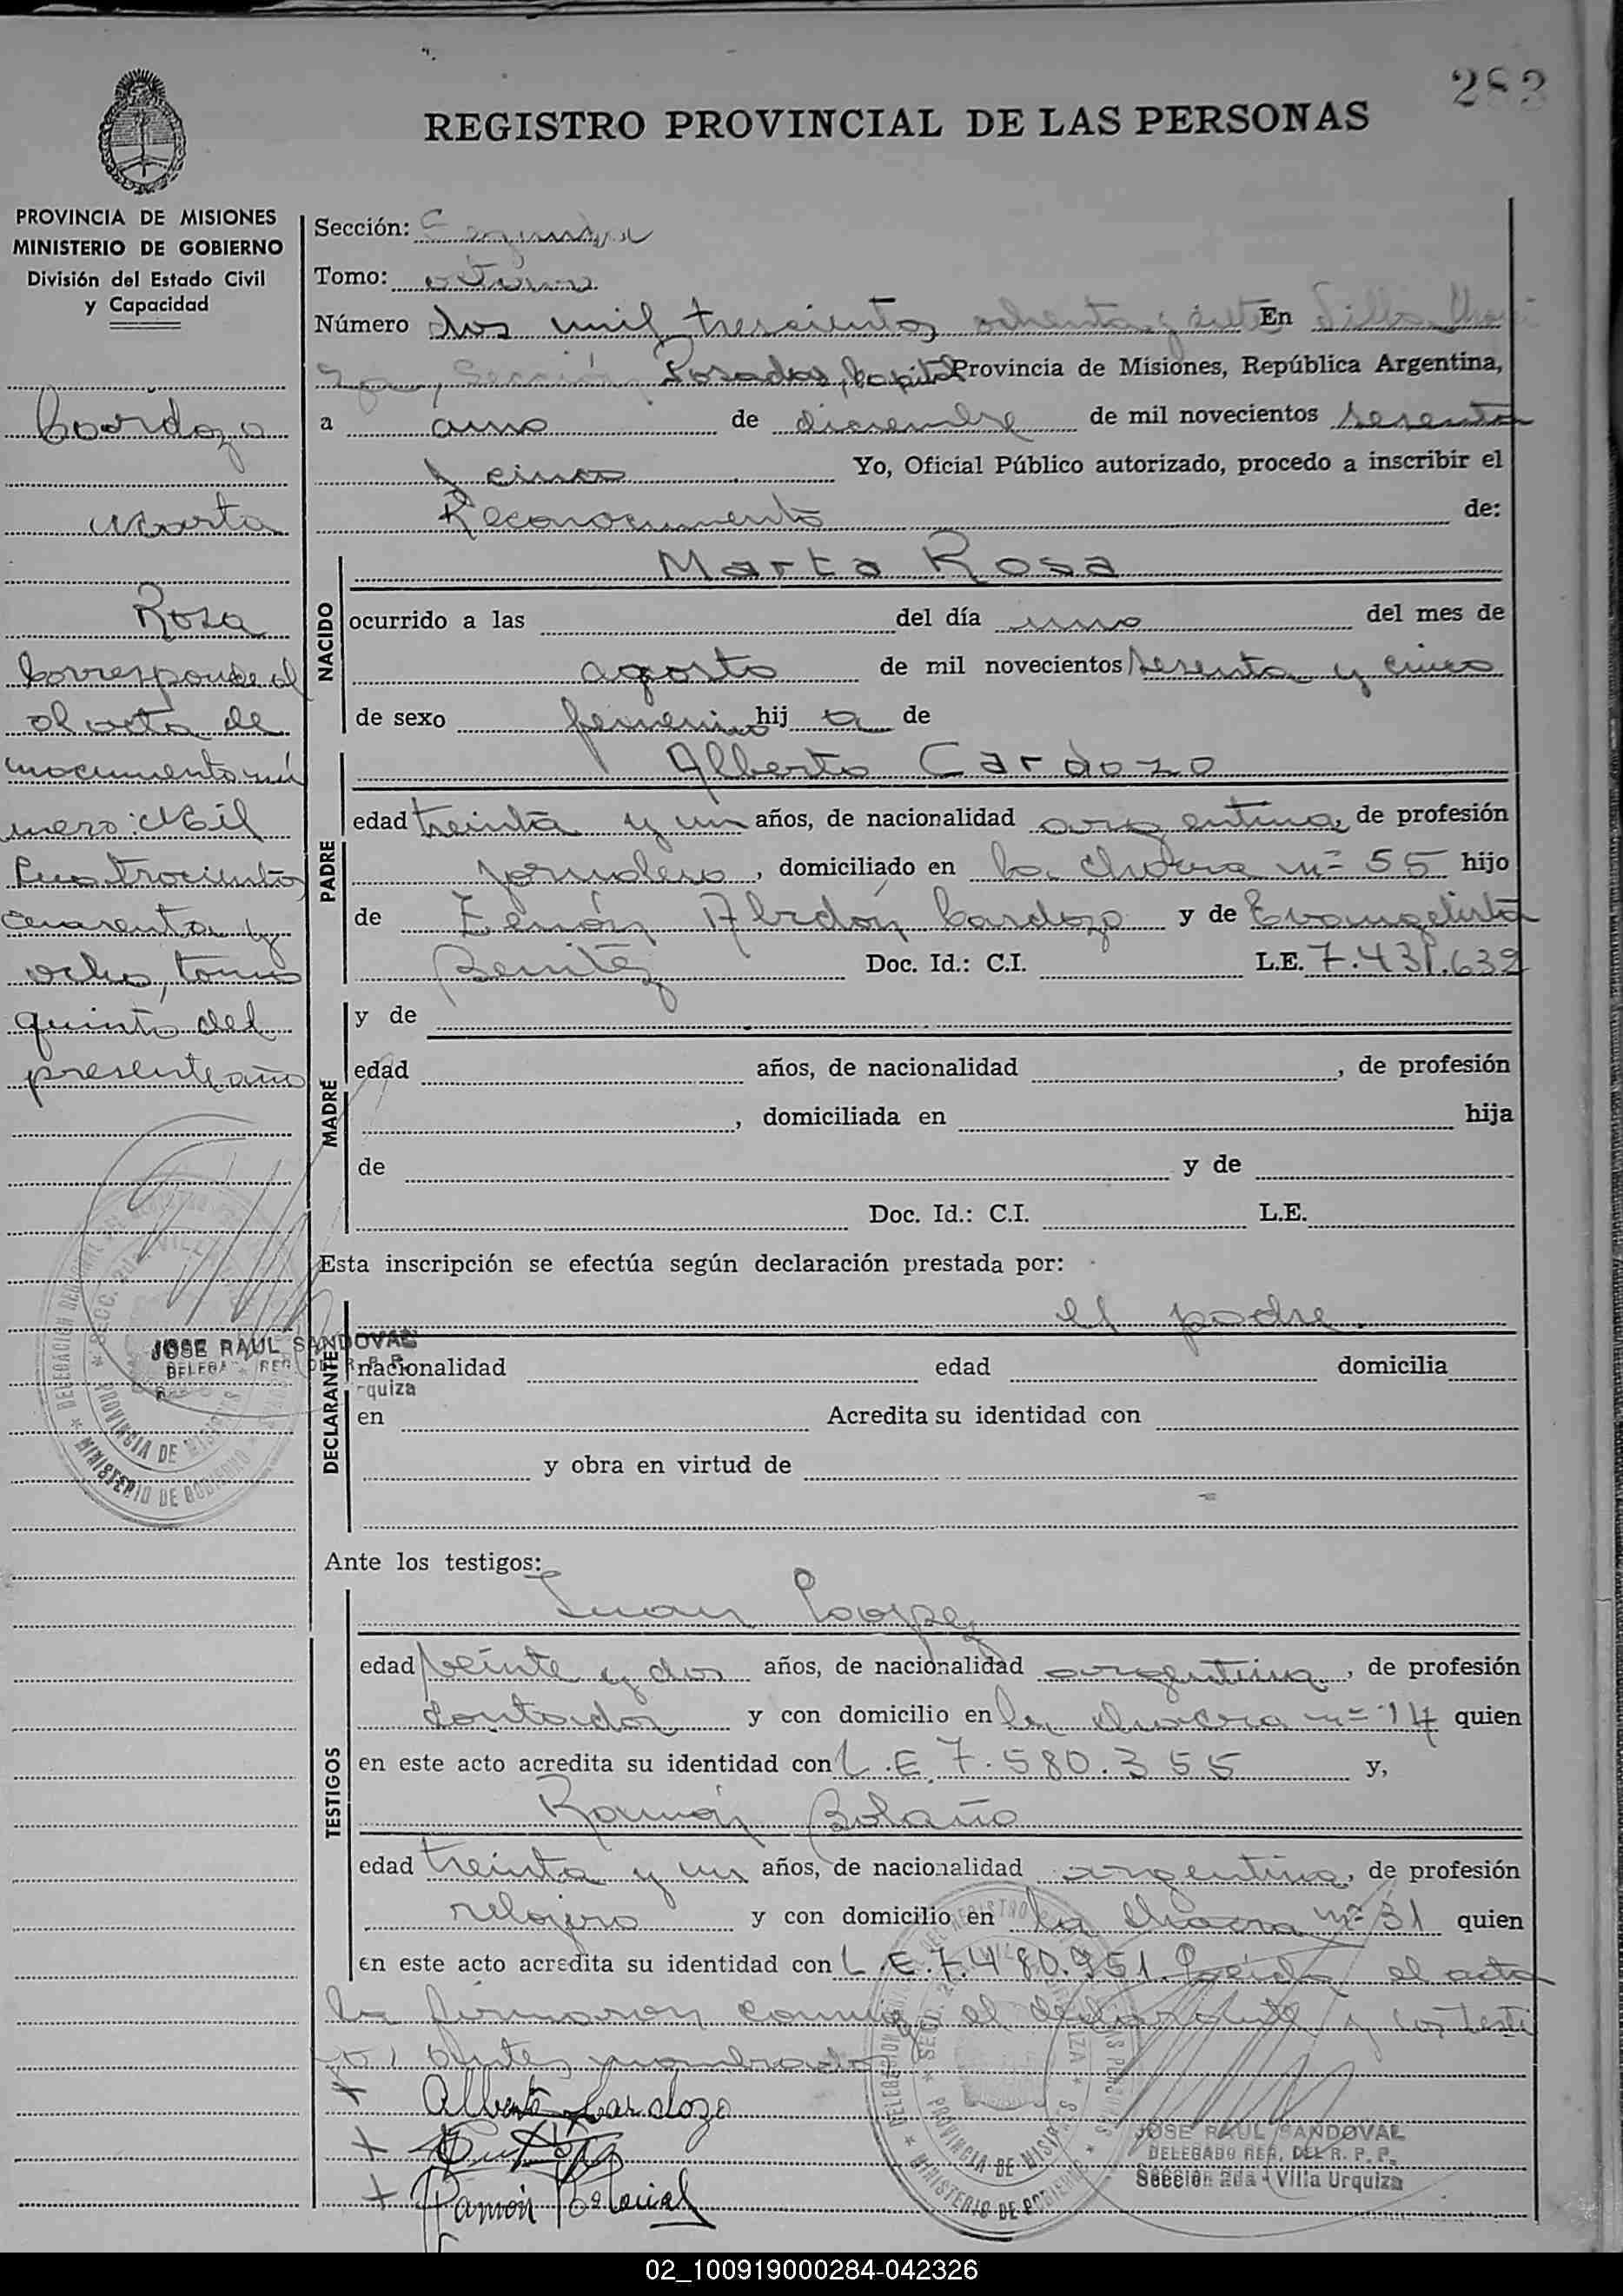 283
REGISTRO PROVINCIAL DE LAS PERSONAS
PROVINCIA DE MISIONES
MINISTERIO DE GOBIERNO
División del Estado Civil
y Capacidad
Cardozo
Marta
Rosa
Corresponde al
al acta de
nacimiento nú
mero: Mil
Cuatrocientos
cuarenta y
ocho, tomo
quinto del
presente año
JOSE RAUL SANDOVAL
Sección: Segunda
Tomo: octavo
Número dos mil trescientos ochenta y siete En Villa Urqui
za, Sección Posadas, Capital Provincia de Misiones, República Argentina,
a uno de diciembre de mil novecientos sesenta
y cinco Yo, Oficial Público autorizado, procedo a inscribir el
Reconocimiento de:
NACIDO
Marta Rosa
ocurrido a las del día uno del mes de
agosto de mil novecientos sesenta y cinco
de sexo femenino hij a de
PADRE
Alberto Cardozo
edad treinta y un años, de nacionalidad argentina, de profesión
jornalero, domiciliado en la chacra nº 55 hijo
de Zenón Abdón Cardozo y de Evangelista
Benítez Doc. Id.: C.I. L.E. 7.431.639
MADRE
y de
edad años, de nacionalidad , de profesión
, domiciliada en hija
de y de
Doc. Id.: C.I. L.E.
Esta inscripción se efectúa según declaración prestada por:
DECLARANTE
el padre.
nacionalidad edad domicilia
en Acredita su identidad con
y obra en virtud de
Ante los testigos:
TESTIGOS
Juan
edad veinte y dos años, de nacionalidad argentina, de profesión
contador y con domicilio en la chacra nº 14 quien
en este acto acredita su identidad con L.E. 7.580.355 y,
Ramón Bolaño
edad treinta y un años, de nacionalidad argentina, de profesión
relojero y con domicilio en la chacra nº 31 quien
en este acto acredita su identidad con L.E. 7.480.951. Leída el acta
la firmaron conmigo el declarante y los testi
gos antes nombrados
Alberto Cardozo
Ramón
JOSE RAUL SANDOVAL
DELEGADO REG. DEL R. P. P.
Sección 2da - Villa Urquiza
02_100919000284-042326